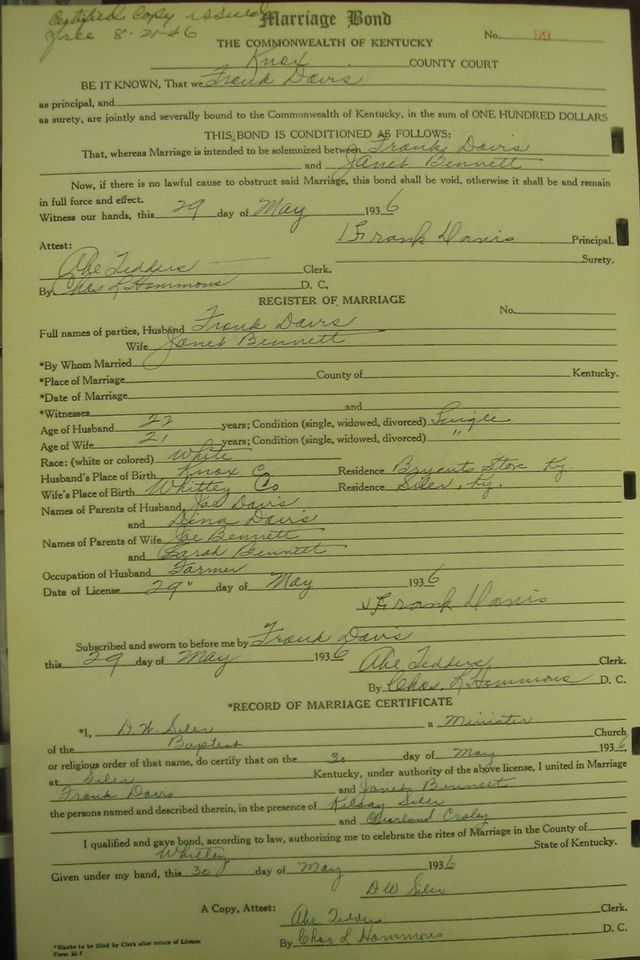 Certified Copy issued
8-21-46
Marriage Bond
No. 99
THE COMMONWEALTH OF KENTUCKY
Knox COUNTY COURT
BE IT KNOWN, That we Frank Davis
as principal, and
as surety, are jointly and severally bound to the Commonwealth of Kentucky, in the sum of ONE HUNDRED DOLLARS
THIS BOND IS CONDITIONED AS FOLLOWS:
That, whereas Marriage is intended to be solemnized between Frank Davis
and Janet Bennett
Now, if there is no lawful cause to obstruct said Marriage, this bond shall be void, otherwise it shall be and remain
in full force and effect.
Witness our hands, this 29 day of May 1936
Frank Davis Principal.
Attest: Surety.
Abe Tedders Clerk.
By Chas L Hammons D. C.
REGISTER OF MARRIAGE
No.
Full names of parties, Husband Frank Davis
Wife Janet Bennett
*By Whom Married
*Place of Marriage County of Kentucky.
*Date of Marriage
*Witnesses and
Age of Husband 22 years; Condition (single, widowed, divorced) Single
Age of Wife 21 years; Condition (single, widowed, divorced) "
Race: (white or colored) White
Husband's Place of Birth Knox Co Residence Bryents Store Ky.
Wife's Place of Birth Whitley Co Residence Siler, Ky.
Names of Parents of Husband Joe Davis
and Davis
Names of Parents of Wife Joe Bennett
and Sarah Bennett
Occupation of Husband Farmer
Date of License 29" day of May 1936
Frank Davis
Subscribed and sworn to before me by Frank Davis
this 29 day of May 1936 Abe Tedders Clerk.
By Chas. L Hammons D. C.
*RECORD OF MARRIAGE CERTIFICATE
*I, D. W. Siler a Minister
of the Baptist Church
or religious order of that name, do certify that on the 30 day of May 1936
at Siler Kentucky, under authority of the above license, I united in Marriage
Frank Davis and Janet Bennett
the persons named and described therein, in the presence of Kelsay Siler
and Croley
I qualified and gave bond, according to law, authorizing me to celebrate the rites of Marriage in the County of
Whitley State of Kentucky.
Given under my hand, this 30 day of May 1936
D W Siler
A Copy, Attest: Abe Tedders Clerk.
By Chas L Hammons D. C.
*Blanks to be filed by Clerk after return of License
Form M-7